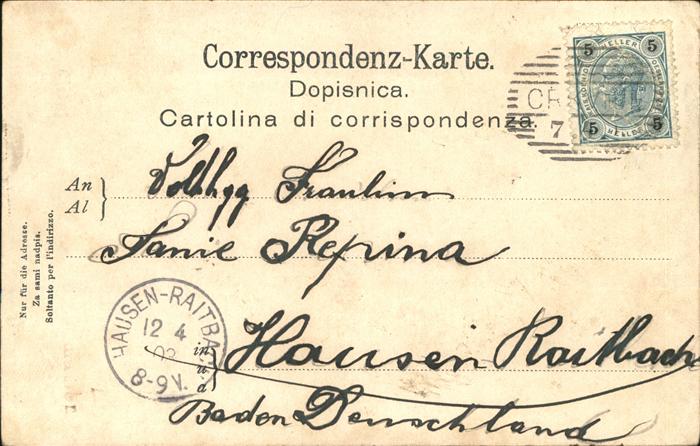 Correspondenz-Karte.
Dopisnica.
Cartolina di corrispondenza.
5 HELLER 5
5 HELLER 5
CR
7
An
Al
Fräulein
Fanie Repina
in
u
a
Hausen Raitbach
Baden Deuschland
HAUSEN-RAITBA
12 4
03
8-9V.
Nur für die Adresse.
Za sami nadpis.
Soltanto per l'indirizzo.